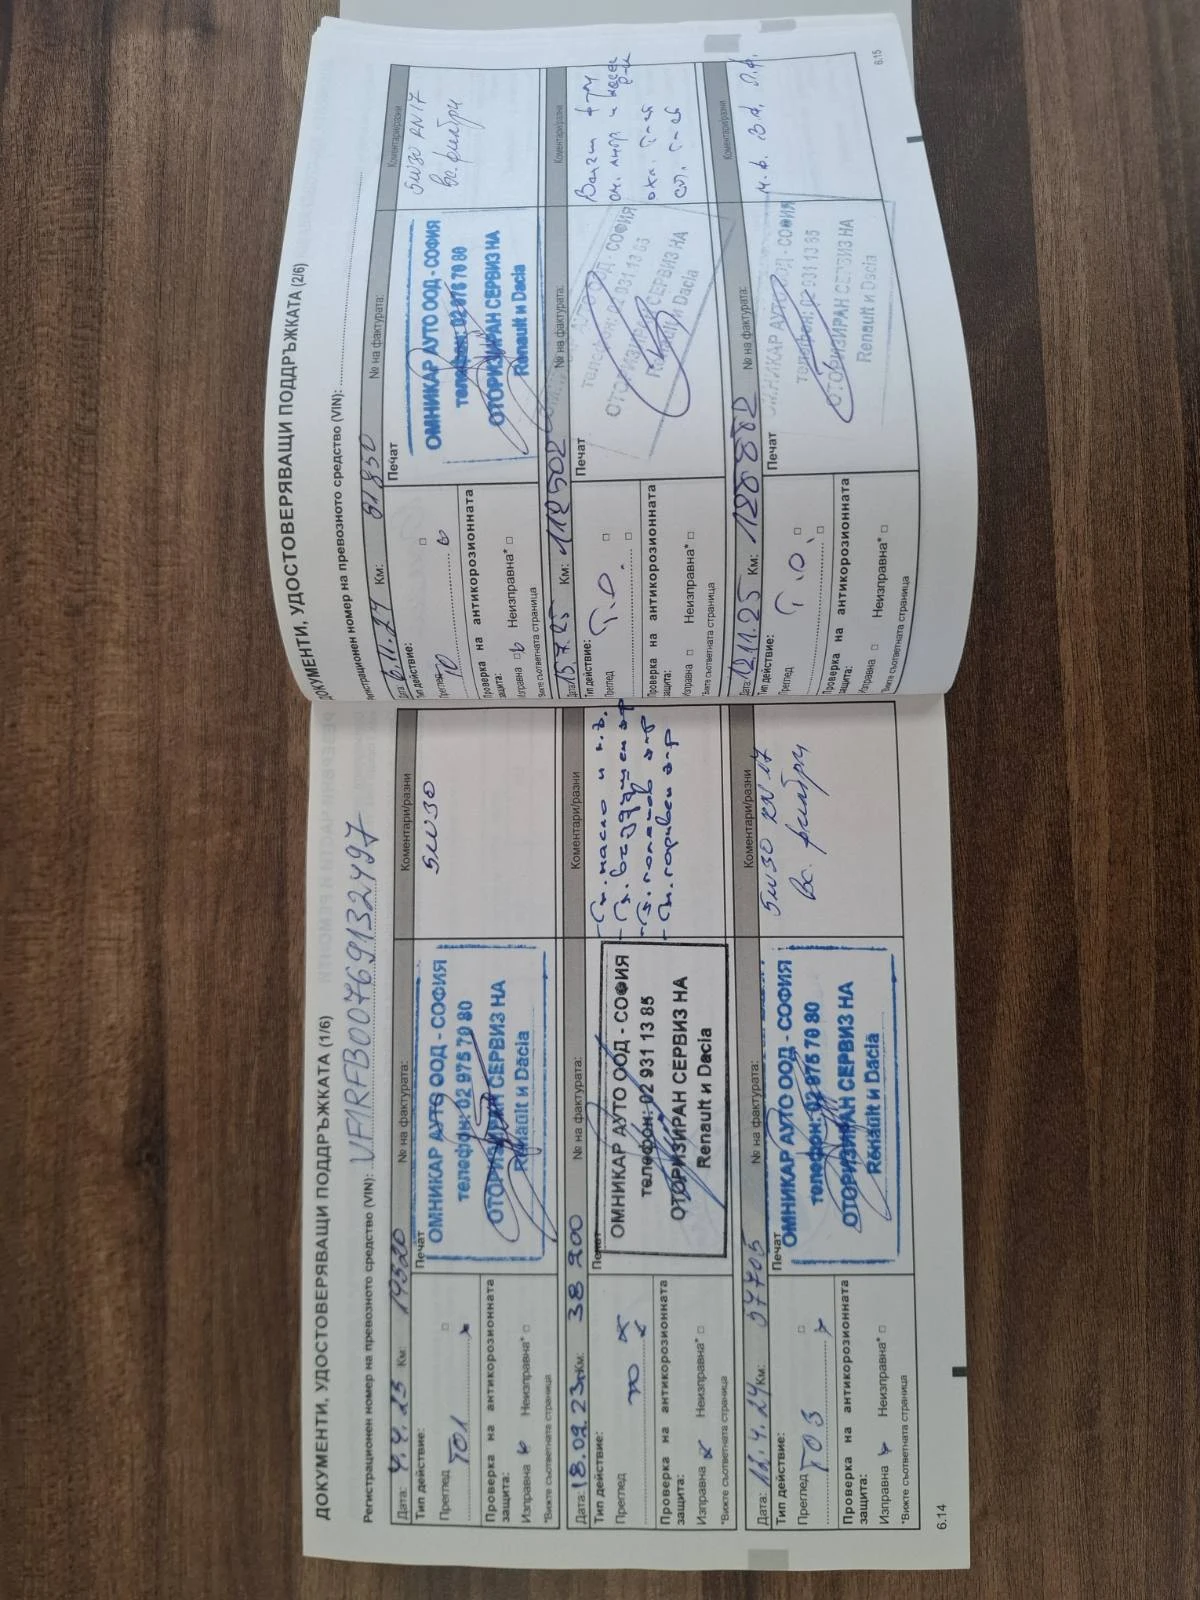 ДОКУМЕНТИ, УДОСТОВЕРЯВАЩИ ПОДДРЪЖКАТА (1/6)
Регистрационен номер на превозното средство (VIN): VF1RFB00769132497
Дата: 4.4.23 Км: 19320 № на фактурата: Коментари/разни
Тип действие: Печат
Преглед □
ТО1
Проверка на антикорозионната защита:
Изправна Неизправна* □
*Вижте съответната страница
ОМНИКАР АУТО ООД - СОФИЯ
телефон: 02 975 70 80
ОТОРИЗИРАН СЕРВИЗ НА
Renault и Dacia
5W30
Дата: 18.09.23 Км: 38 900 № на фактурата: Коментари/разни
Тип действие: Печат
Преглед ТО
Проверка на антикорозионната защита:
Изправна Неизправна* □
*Вижте съответната страница
ОМНИКАР АУТО ООД - СОФИЯ
телефон: 02 931 13 85
ОТОРИЗИРАН СЕРВИЗ НА
Renault и Dacia
- См. масло и
- См. въздушен ф-р
- См. горивен ф-р
Дата: 12.4.24 Км: 57705 № на фактурата: Коментари/разни
Тип действие: Печат
Преглед □
ТО3
Проверка на антикорозионната защита:
Изправна Неизправна* □
*Вижте съответната страница
ОМНИКАР АУТО ООД - СОФИЯ
телефон: 02 975 70 80
ОТОРИЗИРАН СЕРВИЗ НА
Renault и Dacia
5W30 RN17
Вс. филтри
6.14
ДОКУМЕНТИ, УДОСТОВЕРЯВАЩИ ПОДДРЪЖКАТА (2/6)
Регистрационен номер на превозното средство (VIN):
Дата: 6.11.24 Км: 81830 № на фактурата: Коментари/разни
Тип действие: Печат
Преглед □
ТО
Проверка на антикорозионната защита:
Изправна □ Неизправна* □
*Вижте съответната страница
ОМНИКАР АУТО ООД - СОФИЯ
телефон: 02 975 70 80
ОТОРИЗИРАН СЕРВИЗ НА
Renault и Dacia
5W30 RN17
Вс. филтри
Дата: 15.7.25 Км: 112502 № на фактурата: Коментари/разни
Тип действие: Печат
Преглед □
Т.О. □
Проверка на антикорозионната защита:
Изправна □ Неизправна* □
*Вижте съответната страница
АУТО ООД - СОФИЯ
телефон: 02 931 13 85
ОТОРИЗИРАН СЕРВИЗ НА
Renault и Dacia
Дата: 12.11.25 Км: 128882 № на фактурата: Коментари/разни
Тип действие: Печат
Преглед □
Т.О. □
Проверка на антикорозионната защита:
Изправна □ Неизправна* □
*Вижте съответната страница
ОМНИКАР АУТО ООД - СОФИЯ
телефон: 02 931 13 85
ОТОРИЗИРАН СЕРВИЗ НА
Renault и Dacia
м.ф. В.ф. П.ф.
6.15